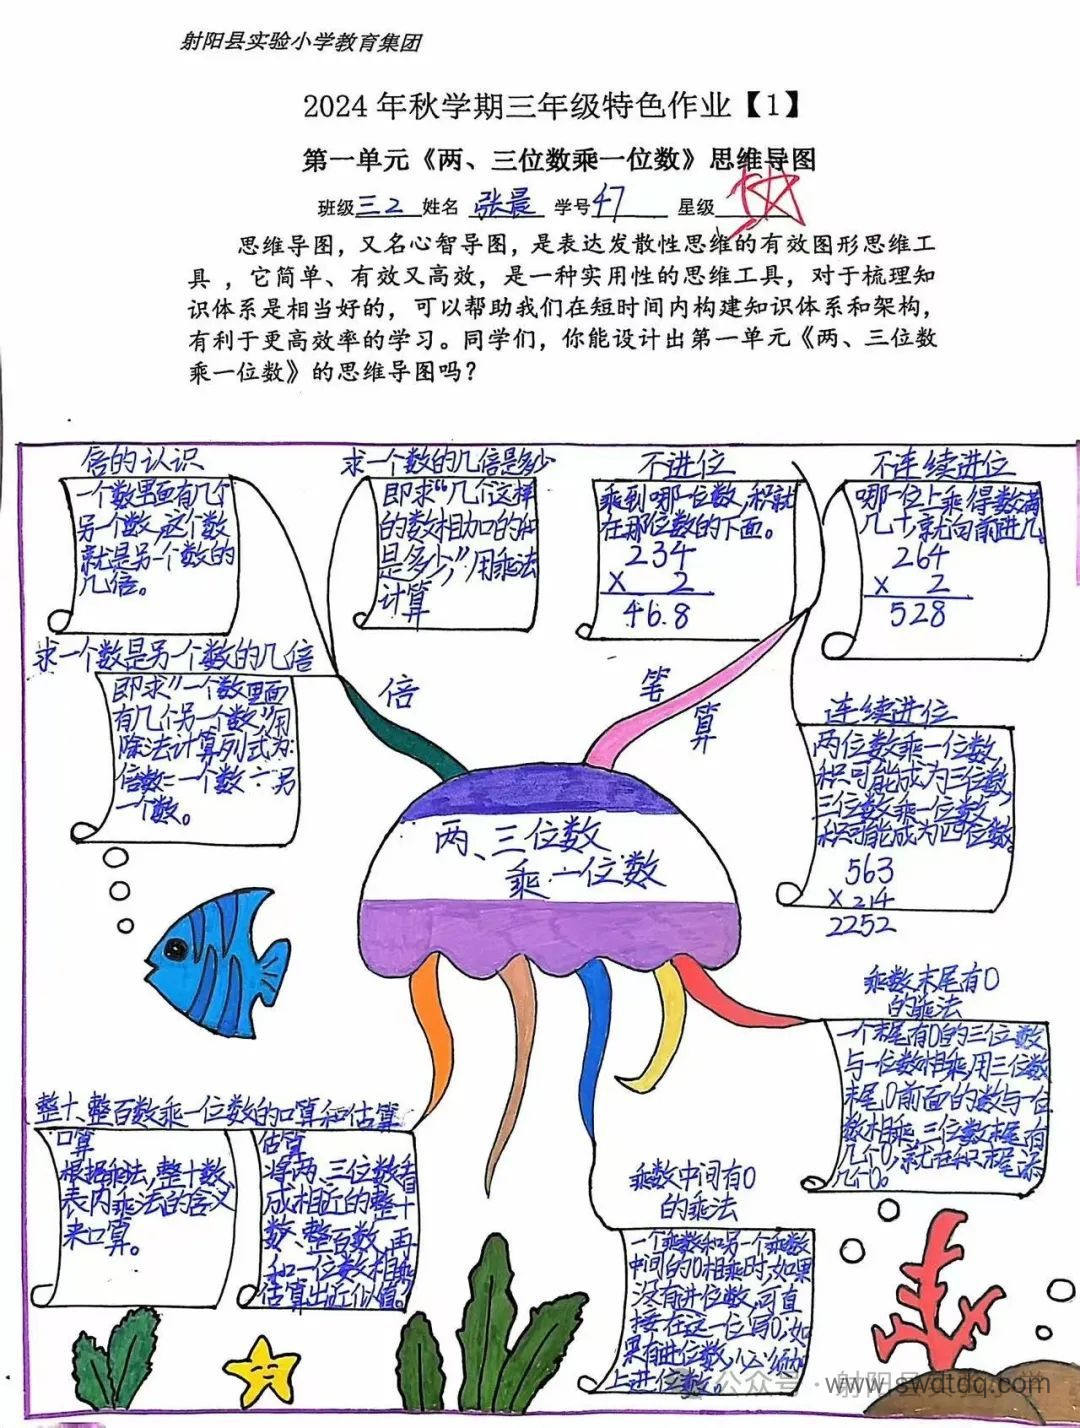 射阳县实验小学教育集团
2024年秋学期三年级特色作业【1】
第一单元《两、三位数乘一位数》思维导图
班级三2 姓名 张晨 学号47 星级
思维导图，又名心智导图，是表达发散性思维的有效图形思维工
具 ，它简单、有效又高效，是一种实用性的思维工具，对于梳理知
识体系是相当好的，可以帮助我们在短时间内构建知识体系和架构，
有利于更高效率的学习。同学们，你能设计出第一单元《两、三位数
乘一位数》的思维导图吗？
倍的认识
一个数里面有几个
另一个数，这个数
就是另一个数的
几倍。
求一个数的几倍是多少
即求“几个这样
的数相加的和
是多少，”用乘法
计算
不进位
乘到哪一位数，积就
在那位数的下面。
234
× 2
46.8
不连续进位
哪一位上乘得数满
几十，就向前进几。
264
× 2
528
求一个数是另一个数的几倍
即求“一个数里面
有几个另一个数”用
除法计算列式为:
倍数=一个数÷另
一个数。
倍
笔算
连续进位
两位数乘一位数，
积可能成为三位数，
三位数乘一位数，
积可能成为四位数。
563
× 214
2252
两、三位数
乘一位数
乘数末尾有0
的乘法
一个末尾有0的三位数
与一位数相乘，用三位数
末尾0前面的数与一位
数相乘，三位数末尾有
几个0，就在积末尾添
几个0。
整十、整百数乘一位数的口算和估算
口算
根据乘法，整十数
表内乘法的含义
来口算。
估算
将两、三位数看
成相近的整十
数、整百数，再
和一位数相乘
估算出近似值。
乘数中间有0
的乘法
一个乘数和另一个乘数
中间的0相乘时，如果
没有进位数，可直
接在这一位写0；如
果有进位数，必须加
上进位数。
公众号·射阳
www.swdtdq.com